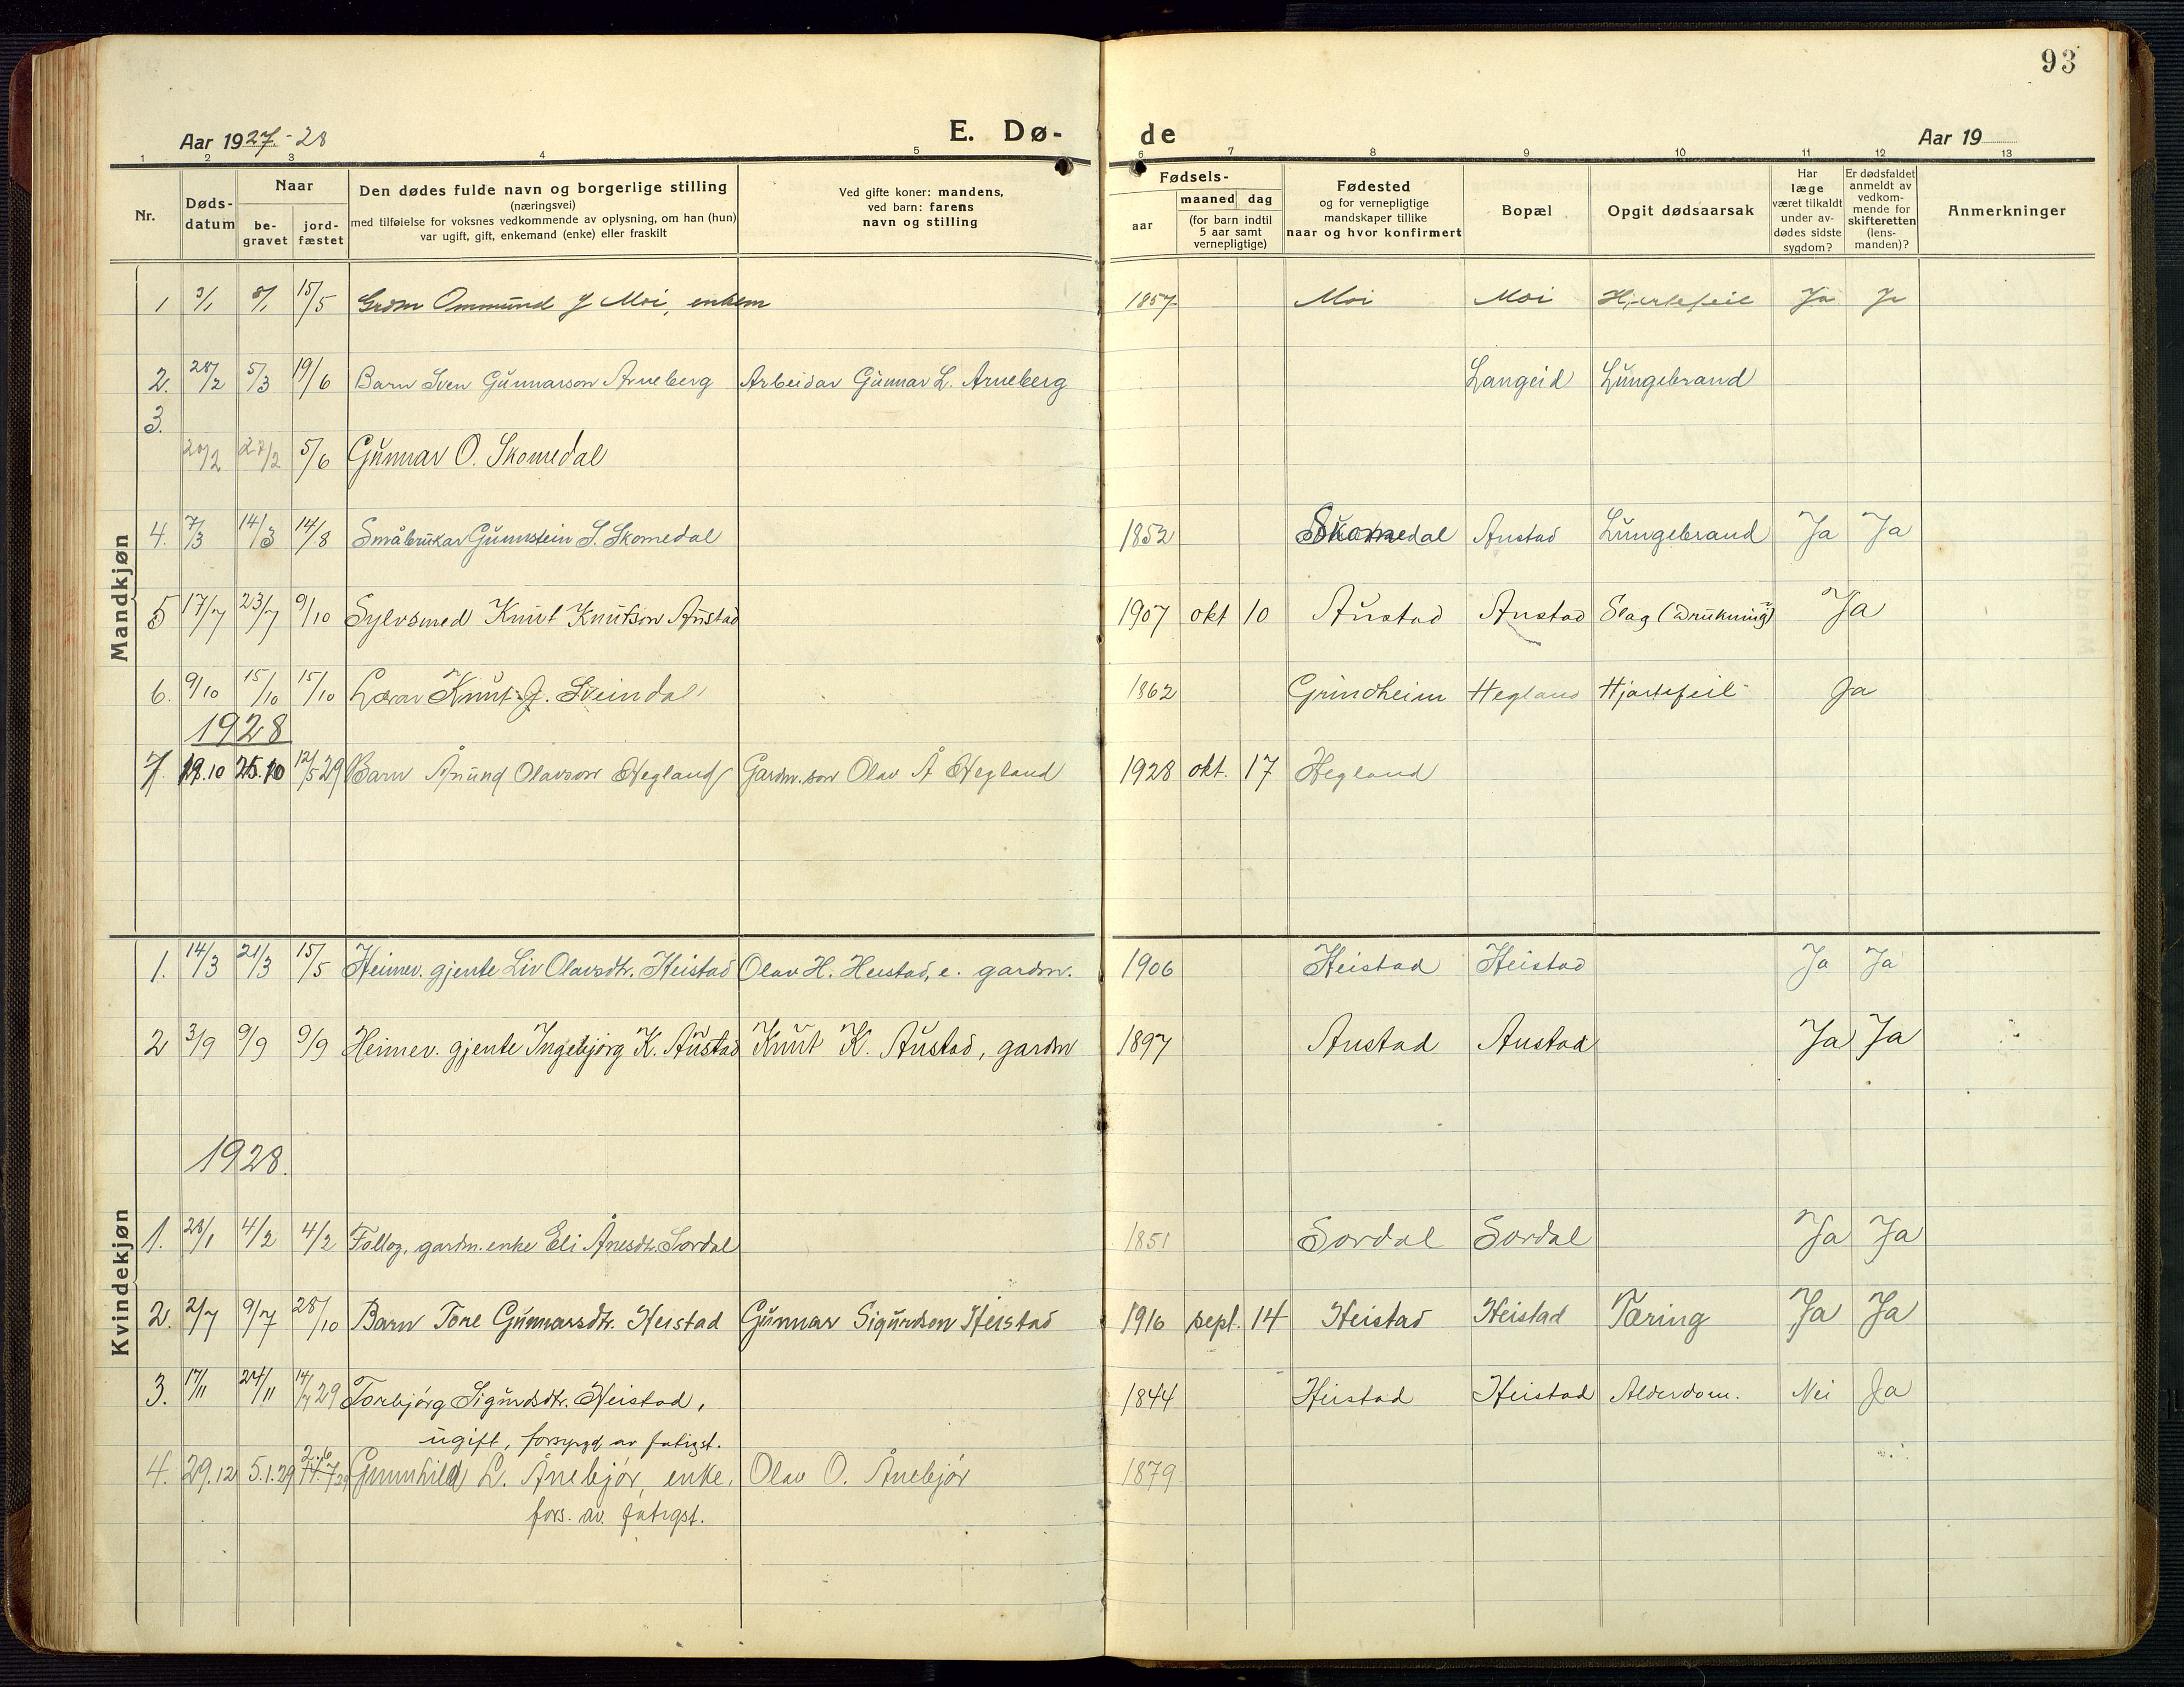 93
Aar 1927-28
E. Dø-
de
Aar 19
1 2 3 4 5 6 7 8 9 10 11 12 13
Nr.
Døds-
datum
Naar
be-
gravet
jord-
fæstet
Den dødes fulde navn og borgerlige stilling
(næringsvei)
med tilføielse for voksnes vedkommende av oplysning, om han (hun)
var ugift, gift, enkemand (enke) eller fraskilt
Ved gifte koner: mandens,
ved barn: farens
navn og stilling
Fødsels-
aar
maaned dag
(for barn indtil
5 aar samt
vernepligtige)
Fødested
og for vernepligtige
mandskaper tillike
naar og hvor konfirmert
Bopæl
Opgit dødsaarsak
Har
læge
været tilkaldt
under av-
dødes sidste
sygdom?
Er dødsfaldet
anmeldt av
vedkom-
mende for
skifteretten
(lens-
manden)?
Anmerkninger
Mandkjøn
1 3/1 8/1 15/5 Grdm Ommund J Moi, enkem 1857 Moi Moi Hjertefeil Ja Ja
2. 28/2 5/3 19/6 Barn Sven Gunnarson Arneberg Arbeidar Gunnar L. Arneberg Langeid Lungebrand
3.
20/2 27/2 5/6 Gunnar O. Skomedal
4. 7/3 14/3 14/8 Småbrukar Gunnstein S. Skomedal 1852 Skomedal Austad Lungebrand Ja Ja
5 17/7 23/7 9/10 Sylvsmed Knut Knutson Austad 1907 okt 10 Austad Austad Slag (Drukning) Ja
6. 9/10 15/10 15/10 Lærar Knut J. Sveindal 1862 Grindheim Hegland Hjartefeil Ja
1928
7. 19.10 25.10 12/5 29 Barn Ånund Olavson Hegland Gardm.son Olav Å Hegland 1928 okt. 17 Hegland
Kvindekjøn
1. 14/3 21/3 15/5 Heimev. gjente Liv Olavsdtr. Heistad Olav H. Heistad, e. gardm. 1906 Heistad Heistad Ja Ja
2 3/9 9/9 9/9 Heimev. gjente Ingebjørg K. Austad Knut K. Austad, gardm 1897 Austad Austad Ja Ja
1928.
1. 28/1 4/2 4/2 Follog. gardm. enke Eli Ånesdtr. Sordal 1851 Sordal Sordal Ja Ja
2. 2/7 9/7 28/10 Barn Tore Gunnarsdtr. Heistad Gunnar Sigurdson Heistad 1916 sept. 14 Heistad Heistad Tæring Ja Ja
3. 17/11 24/11 14/7 29 Torbjørg Sigurdsdtr. Heistad, 1844 Heistad Heistad Alderdom. Nei Ja
ugift, forsyrgd av fatigst.
4. 29.12 5.1.29 2.6 Gunnhild L. Ånebjør, enke, Olav O. Ånebjør 1879
fors. av fatigst.